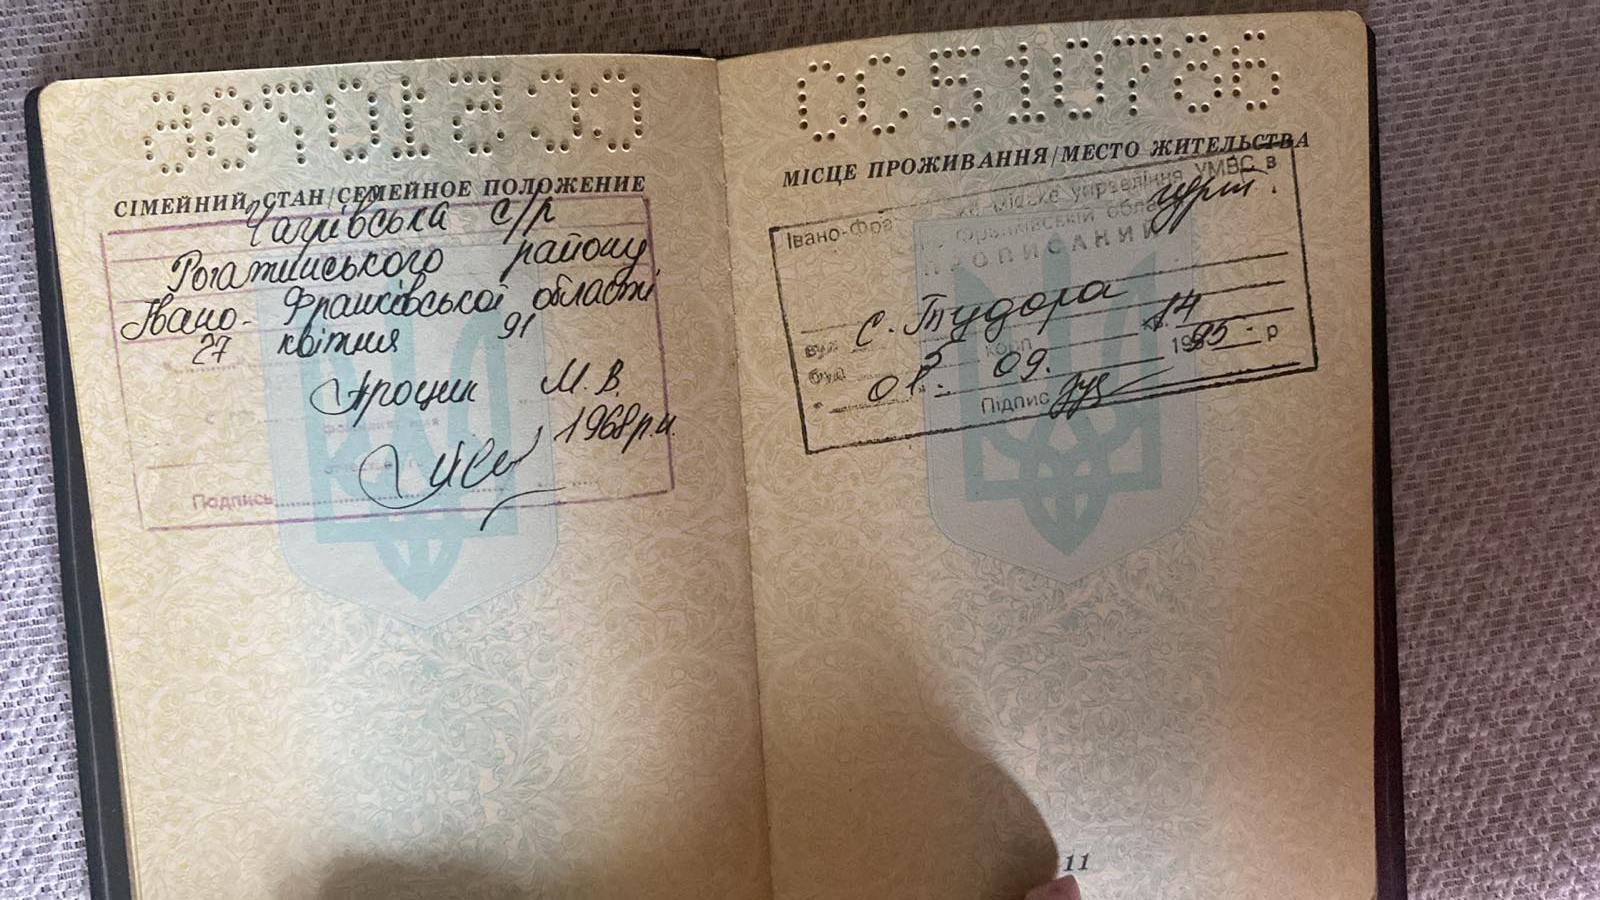 СС 510786
СІМЕЙНИЙ СТАН/СЕМЕЙНОЕ ПОЛОЖЕНИЕ
Чагрівська с/р
Рогатинського району
Івано-Франківської області
27 квітня 91
Яроцик М. В.
1968 р.н.
Подпись
СС 510786
МІСЦЕ ПРОЖИВАННЯ/МЕСТО ЖИТЕЛЬСТВА
Івано-Фра міське управління УМВС в
гурт.
ПРОПИСАНИЙ
вул. С. Тудора
буд. 5 корп. кв. 14
" 01 " 09. 1995 р
Підпис
11